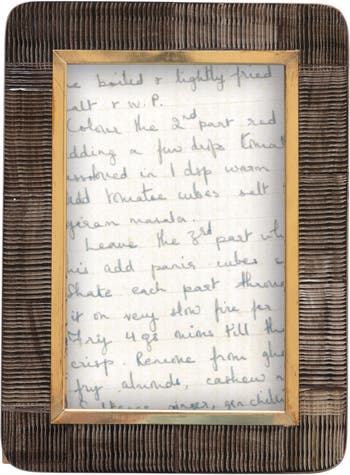 e boiled & lightly fried
alt & W.P.
Colour the 2nd part red
dding a few drops tomat
dissolved in 1 dsp warm
add tomatoe cubes salt
garam masala.
Leave the 3rd part whi
mix add panir cubes
Shake each part throu
it on very slow fire for
Fry 4 gs onions till th
crisp. Remove from ghe
fry almonds, cashew n
ginger, gr. chillies